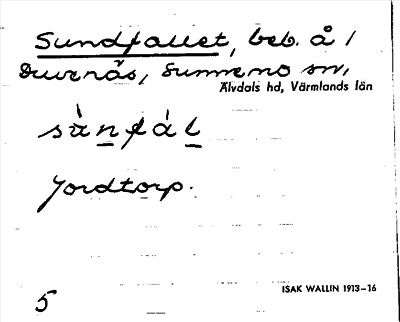 Sundfallet, beb. å /
Duvenäs, Sunnemo sn,
Älvdals hd, Värmlands län
sànfál
Jordtorp.
ISAK WALLIN 1913-16
5